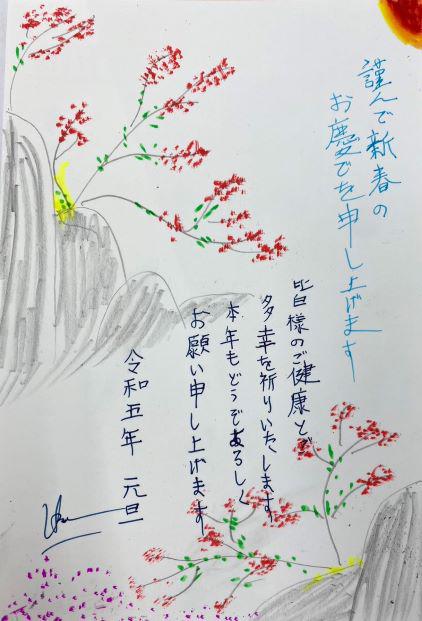 謹んで新春の
お慶びを申し上げます
皆様のご健康とご
多幸を祈りいたします
本年もどうぞよろしく
お願い申し上げます
令和五年 元旦